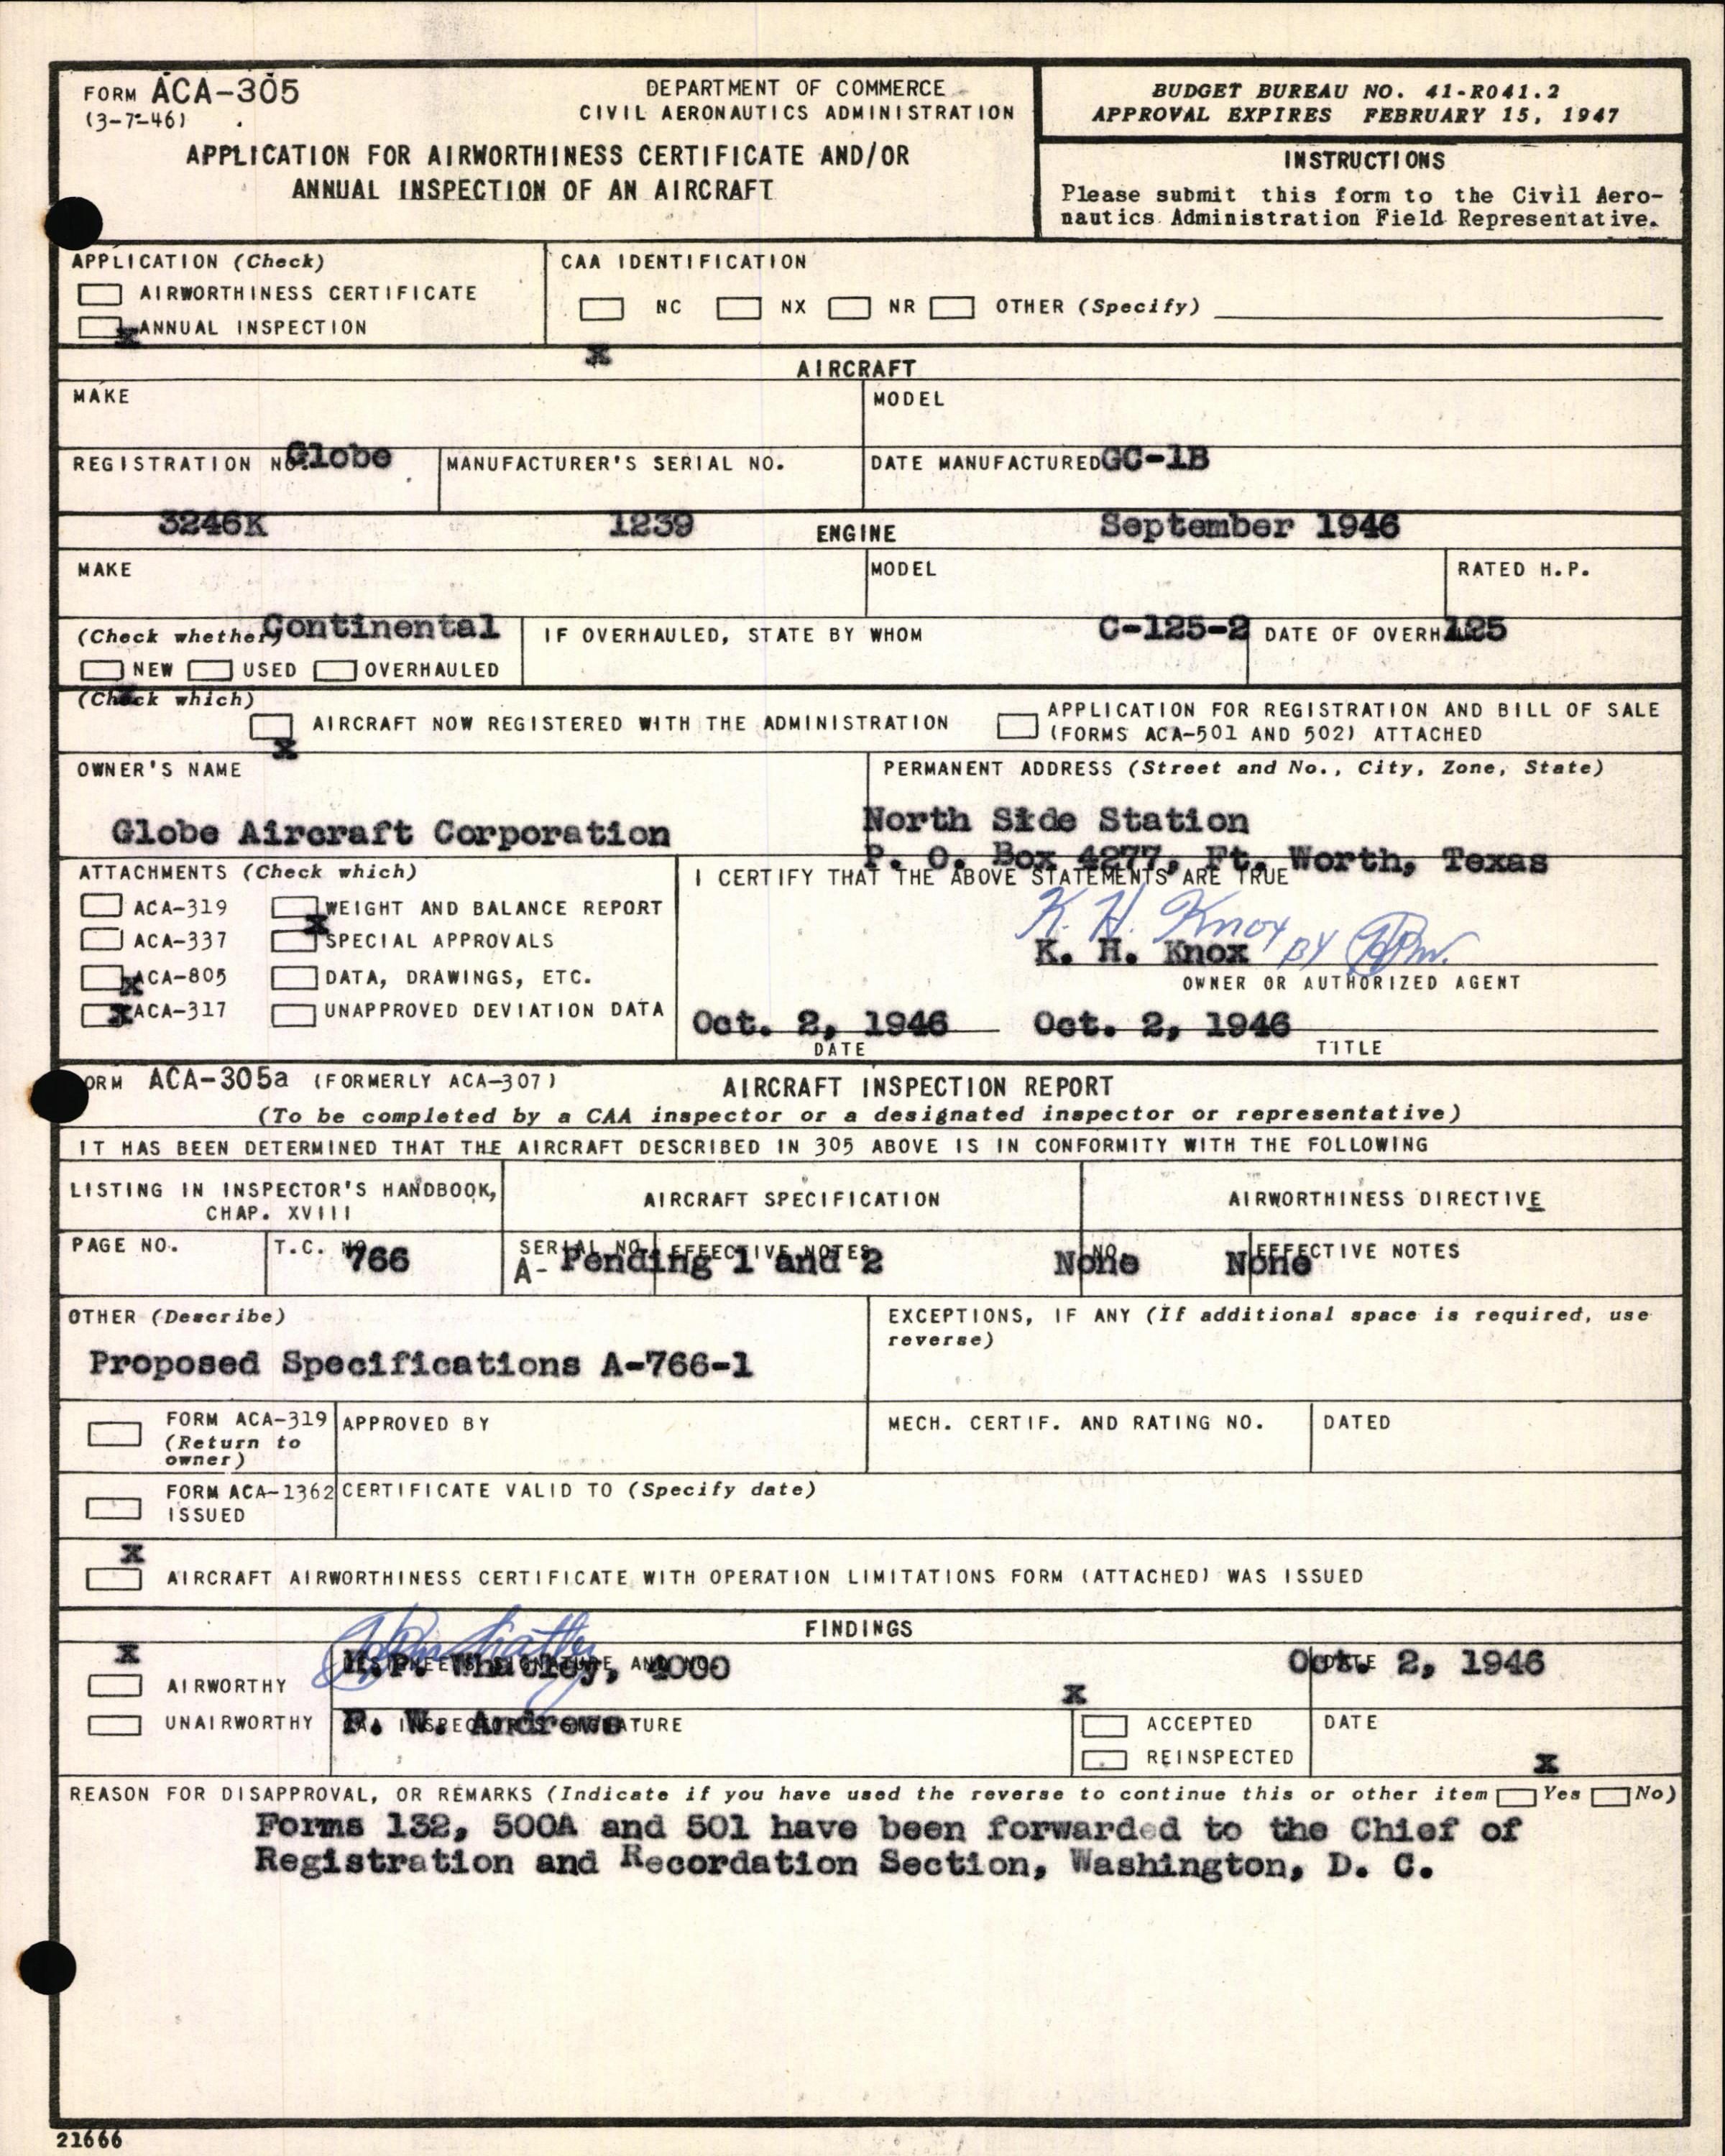 FORM ACA-305
(3-7-46)
DEPARTMENT OF COMMERCE
CIVIL AERONAUTICS ADMINISTRATION
APPLICATION FOR AIRWORTHINESS CERTIFICATE AND/OR
ANNUAL INSPECTION OF AN AIRCRAFT
BUDGET BUREAU NO. 41-R041.2
APPROVAL EXPIRES FEBRUARY 15, 1947
INSTRUCTIONS
Please submit this form to the Civil Aero-
nautics Administration Field Representative.
APPLICATION (Check)
AIRWORTHINESS CERTIFICATE
X ANNUAL INSPECTION
CAA IDENTIFICATION
NC NX NR OTHER (Specify)
X
AIRCRAFT
MAKE
MODEL
Globe
GC-1B
REGISTRATION NO.
MANUFACTURER'S SERIAL NO.
DATE MANUFACTURED
3246K
1239
September 1946
ENGINE
MAKE
MODEL
RATED H.P.
Continental
C-125-2
125
(Check whether)
IF OVERHAULED, STATE BY WHOM
DATE OF OVERHAUL
NEW USED OVERHAULED
X
(Check which)
AIRCRAFT NOW REGISTERED WITH THE ADMINISTRATION
X
APPLICATION FOR REGISTRATION AND BILL OF SALE
(FORMS ACA-501 AND 502) ATTACHED
OWNER'S NAME
Globe Aircraft Corporation
PERMANENT ADDRESS (Street and No., City, Zone, State)
North Side Station
P. O. Box 4277, Ft. Worth, Texas
ATTACHMENTS (Check which)
ACA-319 WEIGHT AND BALANCE REPORT
X
ACA-337 SPECIAL APPROVALS
X ACA-805 DATA, DRAWINGS, ETC.
X ACA-317 UNAPPROVED DEVIATION DATA
I CERTIFY THAT THE ABOVE STATEMENTS ARE TRUE
K. H. Knox BY
K. H. Knox
OWNER OR AUTHORIZED AGENT
Oct. 2, 1946 Oct. 2, 1946
DATE TITLE
FORM ACA-305a (FORMERLY ACA-307)
AIRCRAFT INSPECTION REPORT
(To be completed by a CAA inspector or a designated inspector or representative)
IT HAS BEEN DETERMINED THAT THE AIRCRAFT DESCRIBED IN 305 ABOVE IS IN CONFORMITY WITH THE FOLLOWING
LISTING IN INSPECTOR'S HANDBOOK,
CHAP. XVIII
AIRCRAFT SPECIFICATION
AIRWORTHINESS DIRECTIVE
PAGE NO. T.C. NO. SERIAL NO. EFFECTIVE NOTES NO. EFFECTIVE NOTES
766 A- Pending 1 and 2 None None
OTHER (Describe)
Proposed Specifications A-766-1
EXCEPTIONS, IF ANY (If additional space is required, use
reverse)
FORM ACA-319
(Return to
owner)
APPROVED BY
MECH. CERTIF. AND RATING NO.
DATED
FORM ACA-1362
ISSUED
CERTIFICATE VALID TO (Specify date)
X
AIRCRAFT AIRWORTHINESS CERTIFICATE WITH OPERATION LIMITATIONS FORM (ATTACHED) WAS ISSUED
FINDINGS
X
AIRWORTHY
UNAIRWORTHY
DESIGNEE'S SIGNATURE AND NO.
H.P. Whatley, 4000
DATE
Oct. 2, 1946
CAA INSPECTOR'S SIGNATURE
F. W. Andrews
X
ACCEPTED
REINSPECTED
DATE
X
REASON FOR DISAPPROVAL, OR REMARKS (Indicate if you have used the reverse to continue this or other item Yes No)
Forms 132, 500A and 501 have been forwarded to the Chief of
Registration and Recordation Section, Washington, D. C.
21666